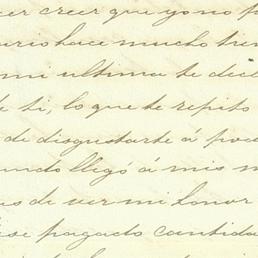 cer creer que yo no p
urio hace mucho tiem
mi ultima te decl
e ti, lo que te repito
de disgustarte á poc
undo llegó á mis m
as de ver mi honor
ese pagado cantida